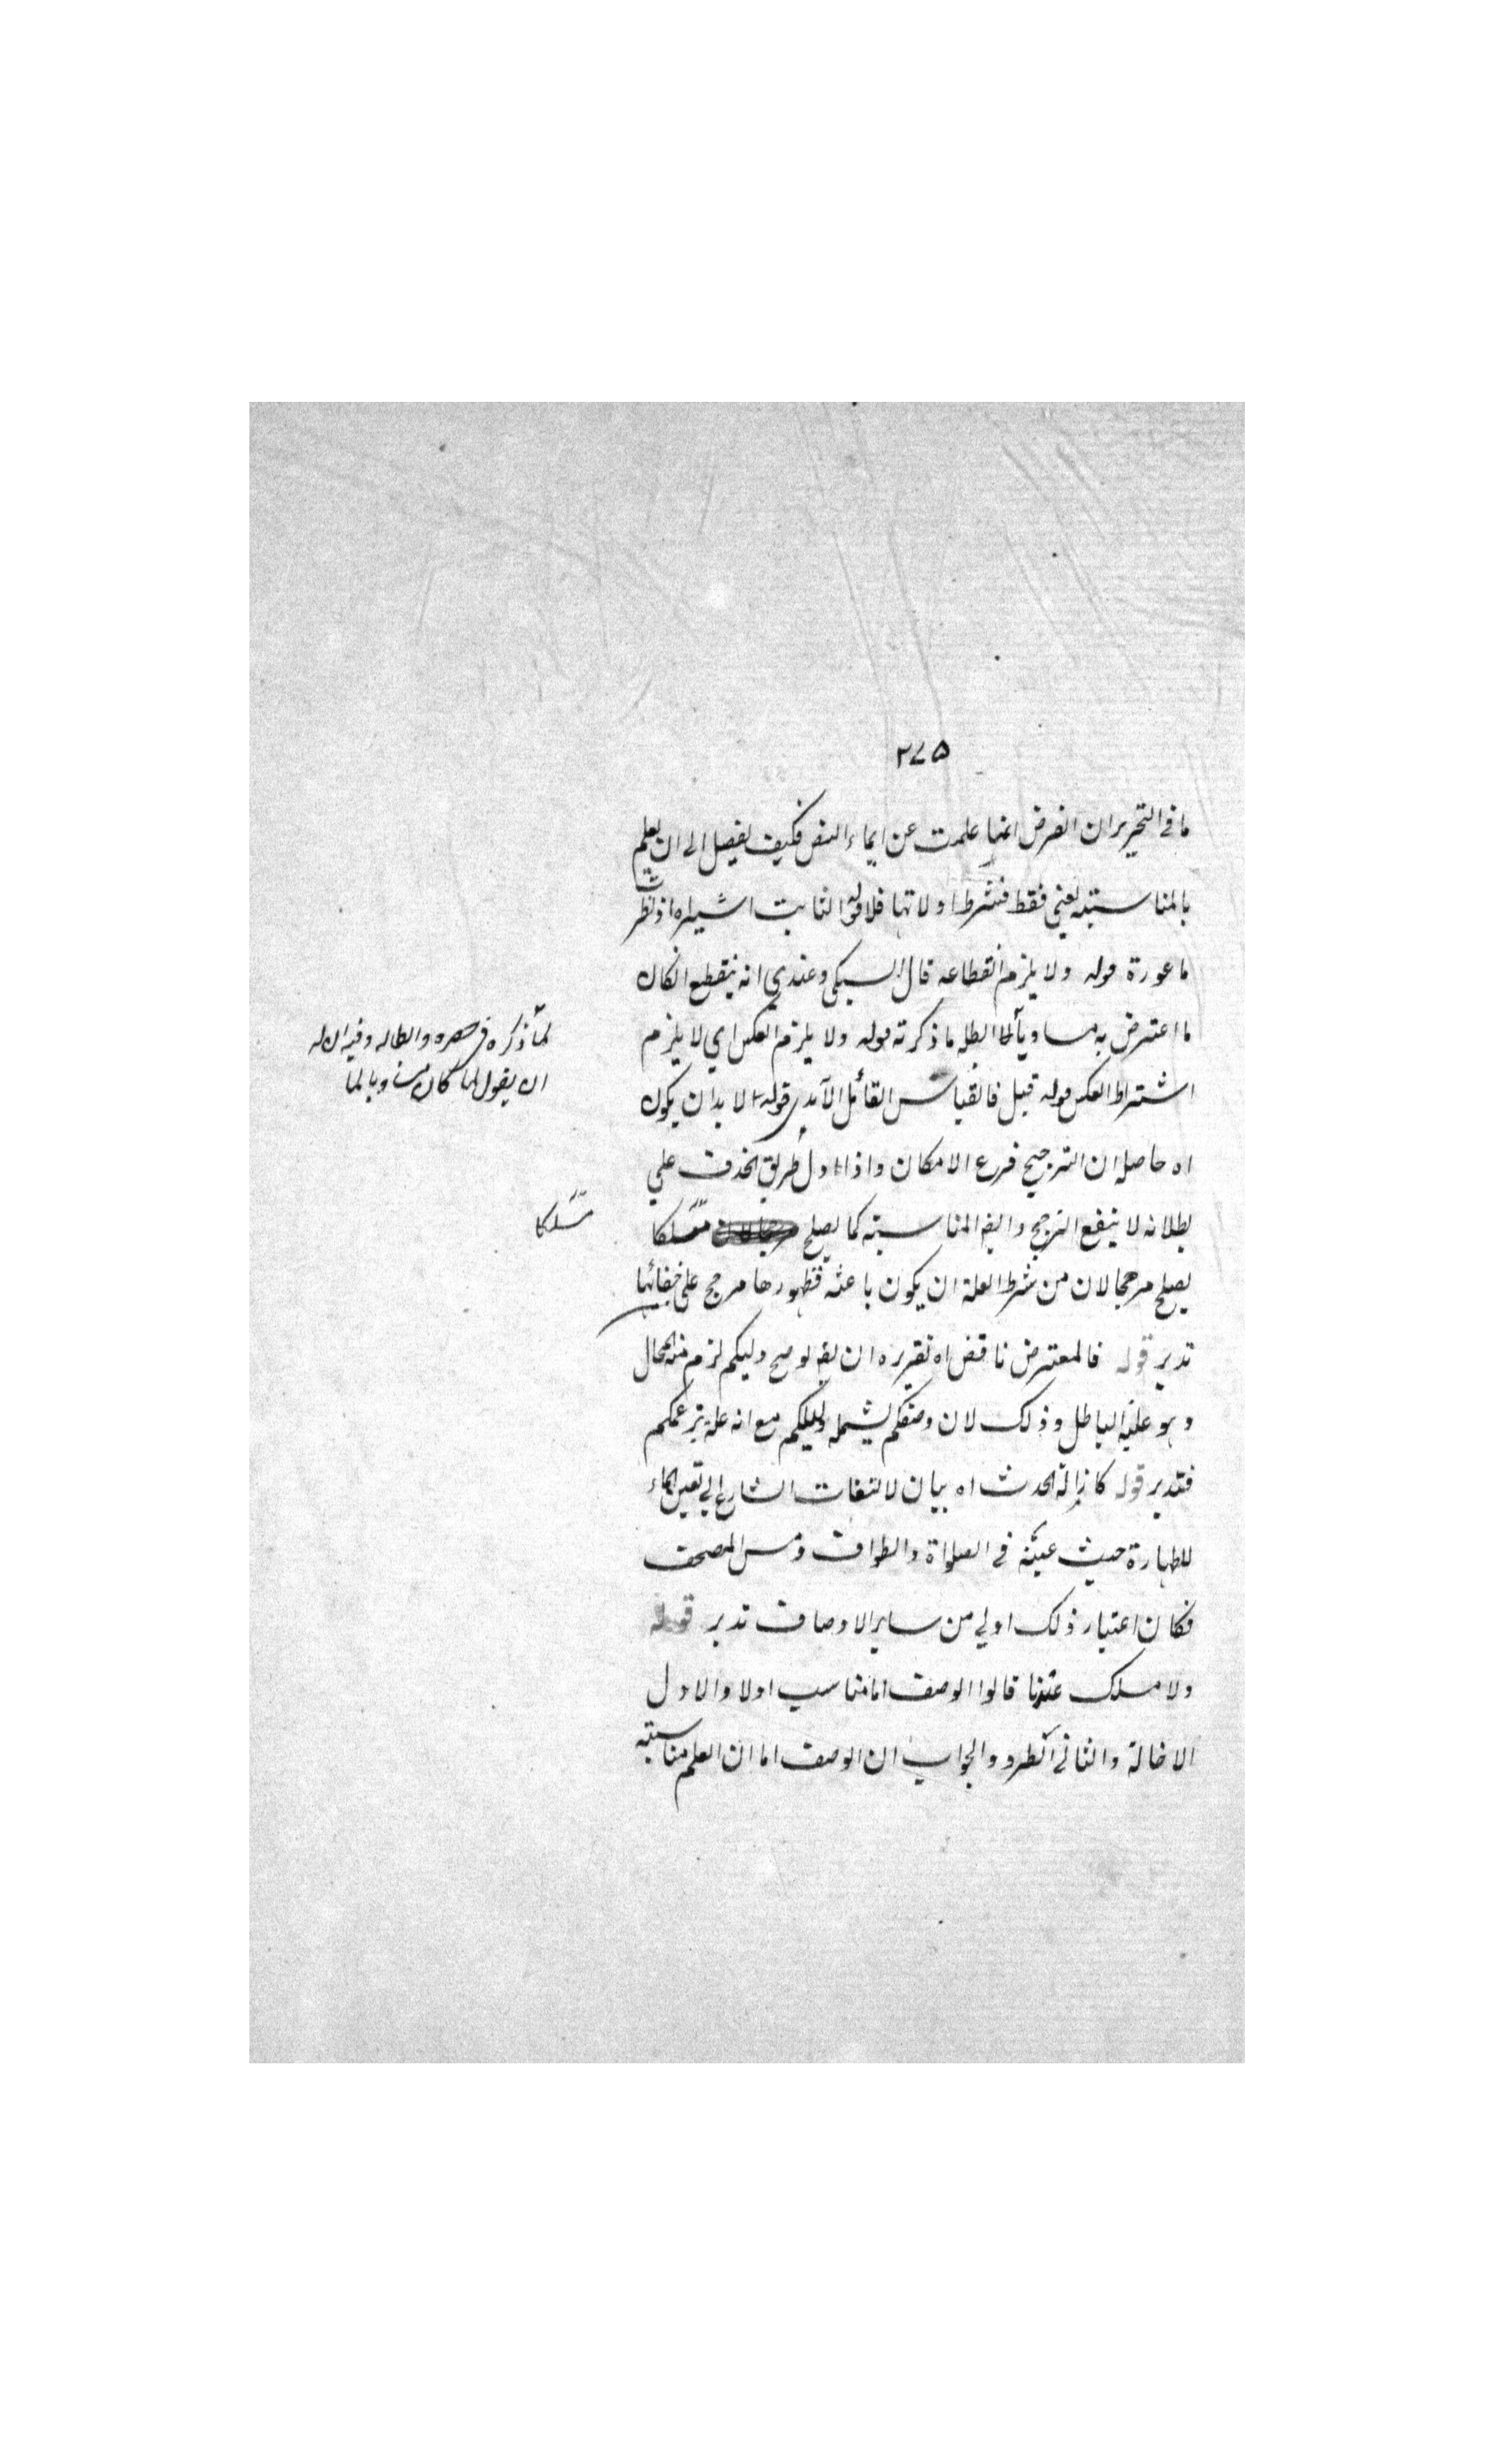 ٢٧٥
ما في التحرير ان الفرض انها علمت عن ايماء النص فكيف يفصل الى ان يعلم
بالمناسبة يعني فقط فتشترط اولا تها فلا قوله الثابت اشير اه اذ نظر
ما عورة قوله ولا يلزم انقطاعه قال السبكي وعندي انه ينقطع ان كان
ما اعترض به مساويا لما ابطله ما ذكرته قوله ولا يلزم العكس اي لا يلزم
لما ذكره في حصره وابطاله وفيه ان له
ان يقول لما كان مساويا لما
اشتراط العكس قوله قيل فالقياس القائل الآمدي قوله لا بد ان يكون
اه حاصله ان الترجيح فرع الامكان واذا دل طريق الحذف علي
بطلانه لا ينفع الترجيح وايضا المناسبة كما يصلح مسلكا
مسلكا
يصلح مرجحا لان من شرط العلة ان يكون باعثة فظهورها مرجح على خفائها
تدبر قوله فالمعترض ناقض اه تقريره ان يقول صح دليلكم لزم منه المحال
وهو علية الباطل وذلك لان وصفكم يشمله دليلكم مع انه علة بزعمكم
فتدبر قوله كازالة الحدث اه بيان لالتفات الشارع الي تعين الماء
للطهارة حيث عينه في الصلواة والطواف ومس المصحف
فكان اعتبار ذلك اولي من ساير الاوصاف تدبر قوله
ولا مسلك عندنا قالوا الوصف اما مناسب اولا والاول
الاخالة والثاني الطرد والجواب ان الوصف اما ان العلم مناسبته